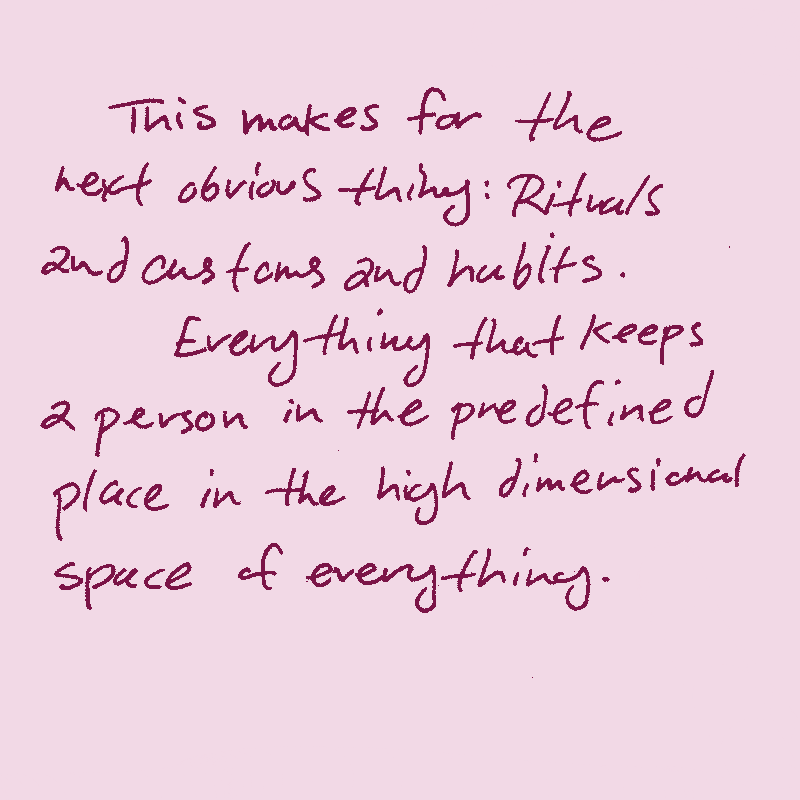 This makes for the
next obvious thing: Rituals
and customs and habits.
Everything that keeps
a person in the predefined
place in the high dimensional
space of everything.